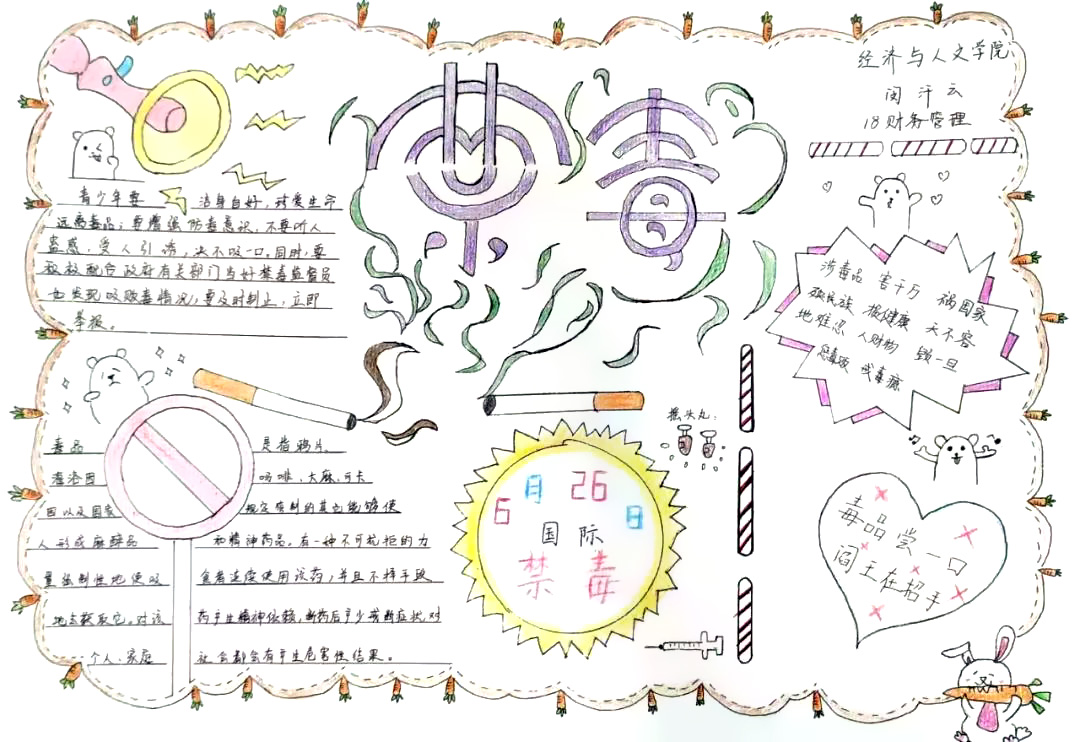 经济与人文学院
闵汗云
18财务管理
禁毒
青少年要 洁身自好，珍爱生命
远离毒品；要增强防毒意识，不要听人
蛊惑，受人引诱，决不吸一口，同时，要
积极配合政府有关部门当好禁毒监督员
如发现吸贩毒情况，要及时制止，立即
举报。
涉毒品 害千万 祸国家
殃民族 损健康 天不容
地难忍 人财物 毁一旦
戒毒瘾
毒品 是指鸦片、
海洛因 吗啡、大麻、可卡
因以及国家 规定管制的其它能够使
人形成麻醉品 和精神药品。有一种不可抗拒的力
量强制性地使吸 食者连续使用该药，并且不择手段
地去获取它。对该 药产生精神依赖，断药后产生戒断症状，对
个人、家庭 社会都会有产生危害性结果。
摇头丸：
6月26日
国际
禁毒
毒品尝一口
阎王在招手